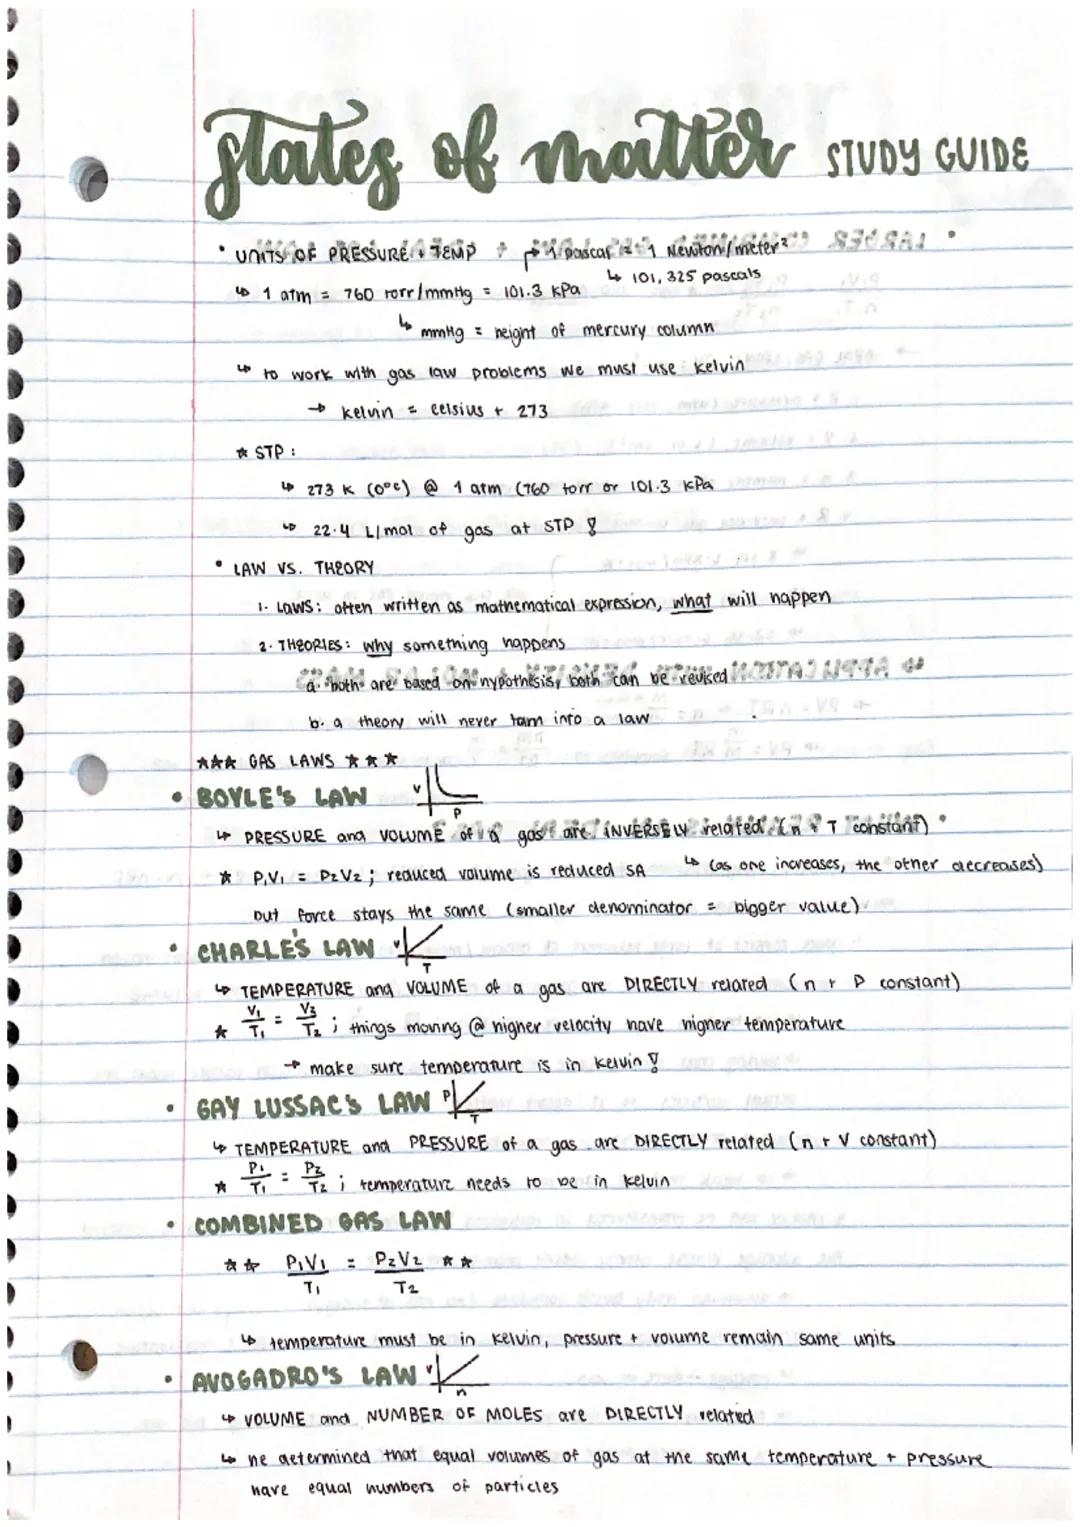 states of matter STUDY GUIDE
• UNITS OF PRESSURE + TEMP → 1 pascal = 1 Newton/meter²
↳ 101,325 pascals
↳ 1 atm = 760 torr/mmHg = 101.3 kPa
↳ mmHg = height of mercury column
↳ to work with gas law problems we must use kelvin
→ kelvin = celsius + 273
☆ STP:
↳ 273 K (0°C) @ 1 atm (760 torr or 101.3 kPa
↳ 22.4 L/mol of gas at STP !
• LAW VS. THEORY
1. LAWS: often written as mathematical expression, what will happen
2. THEORIES: why something happens
a. both are based on hypothesis, both can be revised
b. a theory will never turn into a law
☆☆☆ GAS LAWS ☆☆☆
• BOYLE'S LAW V P
↳ PRESSURE and VOLUME of a gas are INVERSELY related (n + T constant)
☆ P₁V₁ = P₂V₂; reduced volume is reduced SA ↳ (as one increases, the other decreases)
but force stays the same (smaller denominator = bigger value)
• CHARLE'S LAW V T
↳ TEMPERATURE and VOLUME of a gas are DIRECTLY related (n + P constant)
☆ V₁/T₁ = V₂/T₂; things moving @ higher velocity have higher temperature
→ make sure temperature is in kelvin !
• GAY LUSSAC'S LAW P T
↳ TEMPERATURE and PRESSURE of a gas are DIRECTLY related (n + V constant)
☆ P₁/T₁ = P₂/T₂; temperature needs to be in kelvin
• COMBINED GAS LAW
☆☆ P₁V₁/T₁ = P₂V₂/T₂ ☆☆
↳ temperature must be in kelvin, pressure + volume remain same units
• AVOGADRO'S LAW V n
↳ VOLUME and NUMBER OF MOLES are DIRECTLY related
↳ he determined that equal volumes of gas at the same temperature + pressure
have equal numbers of particles